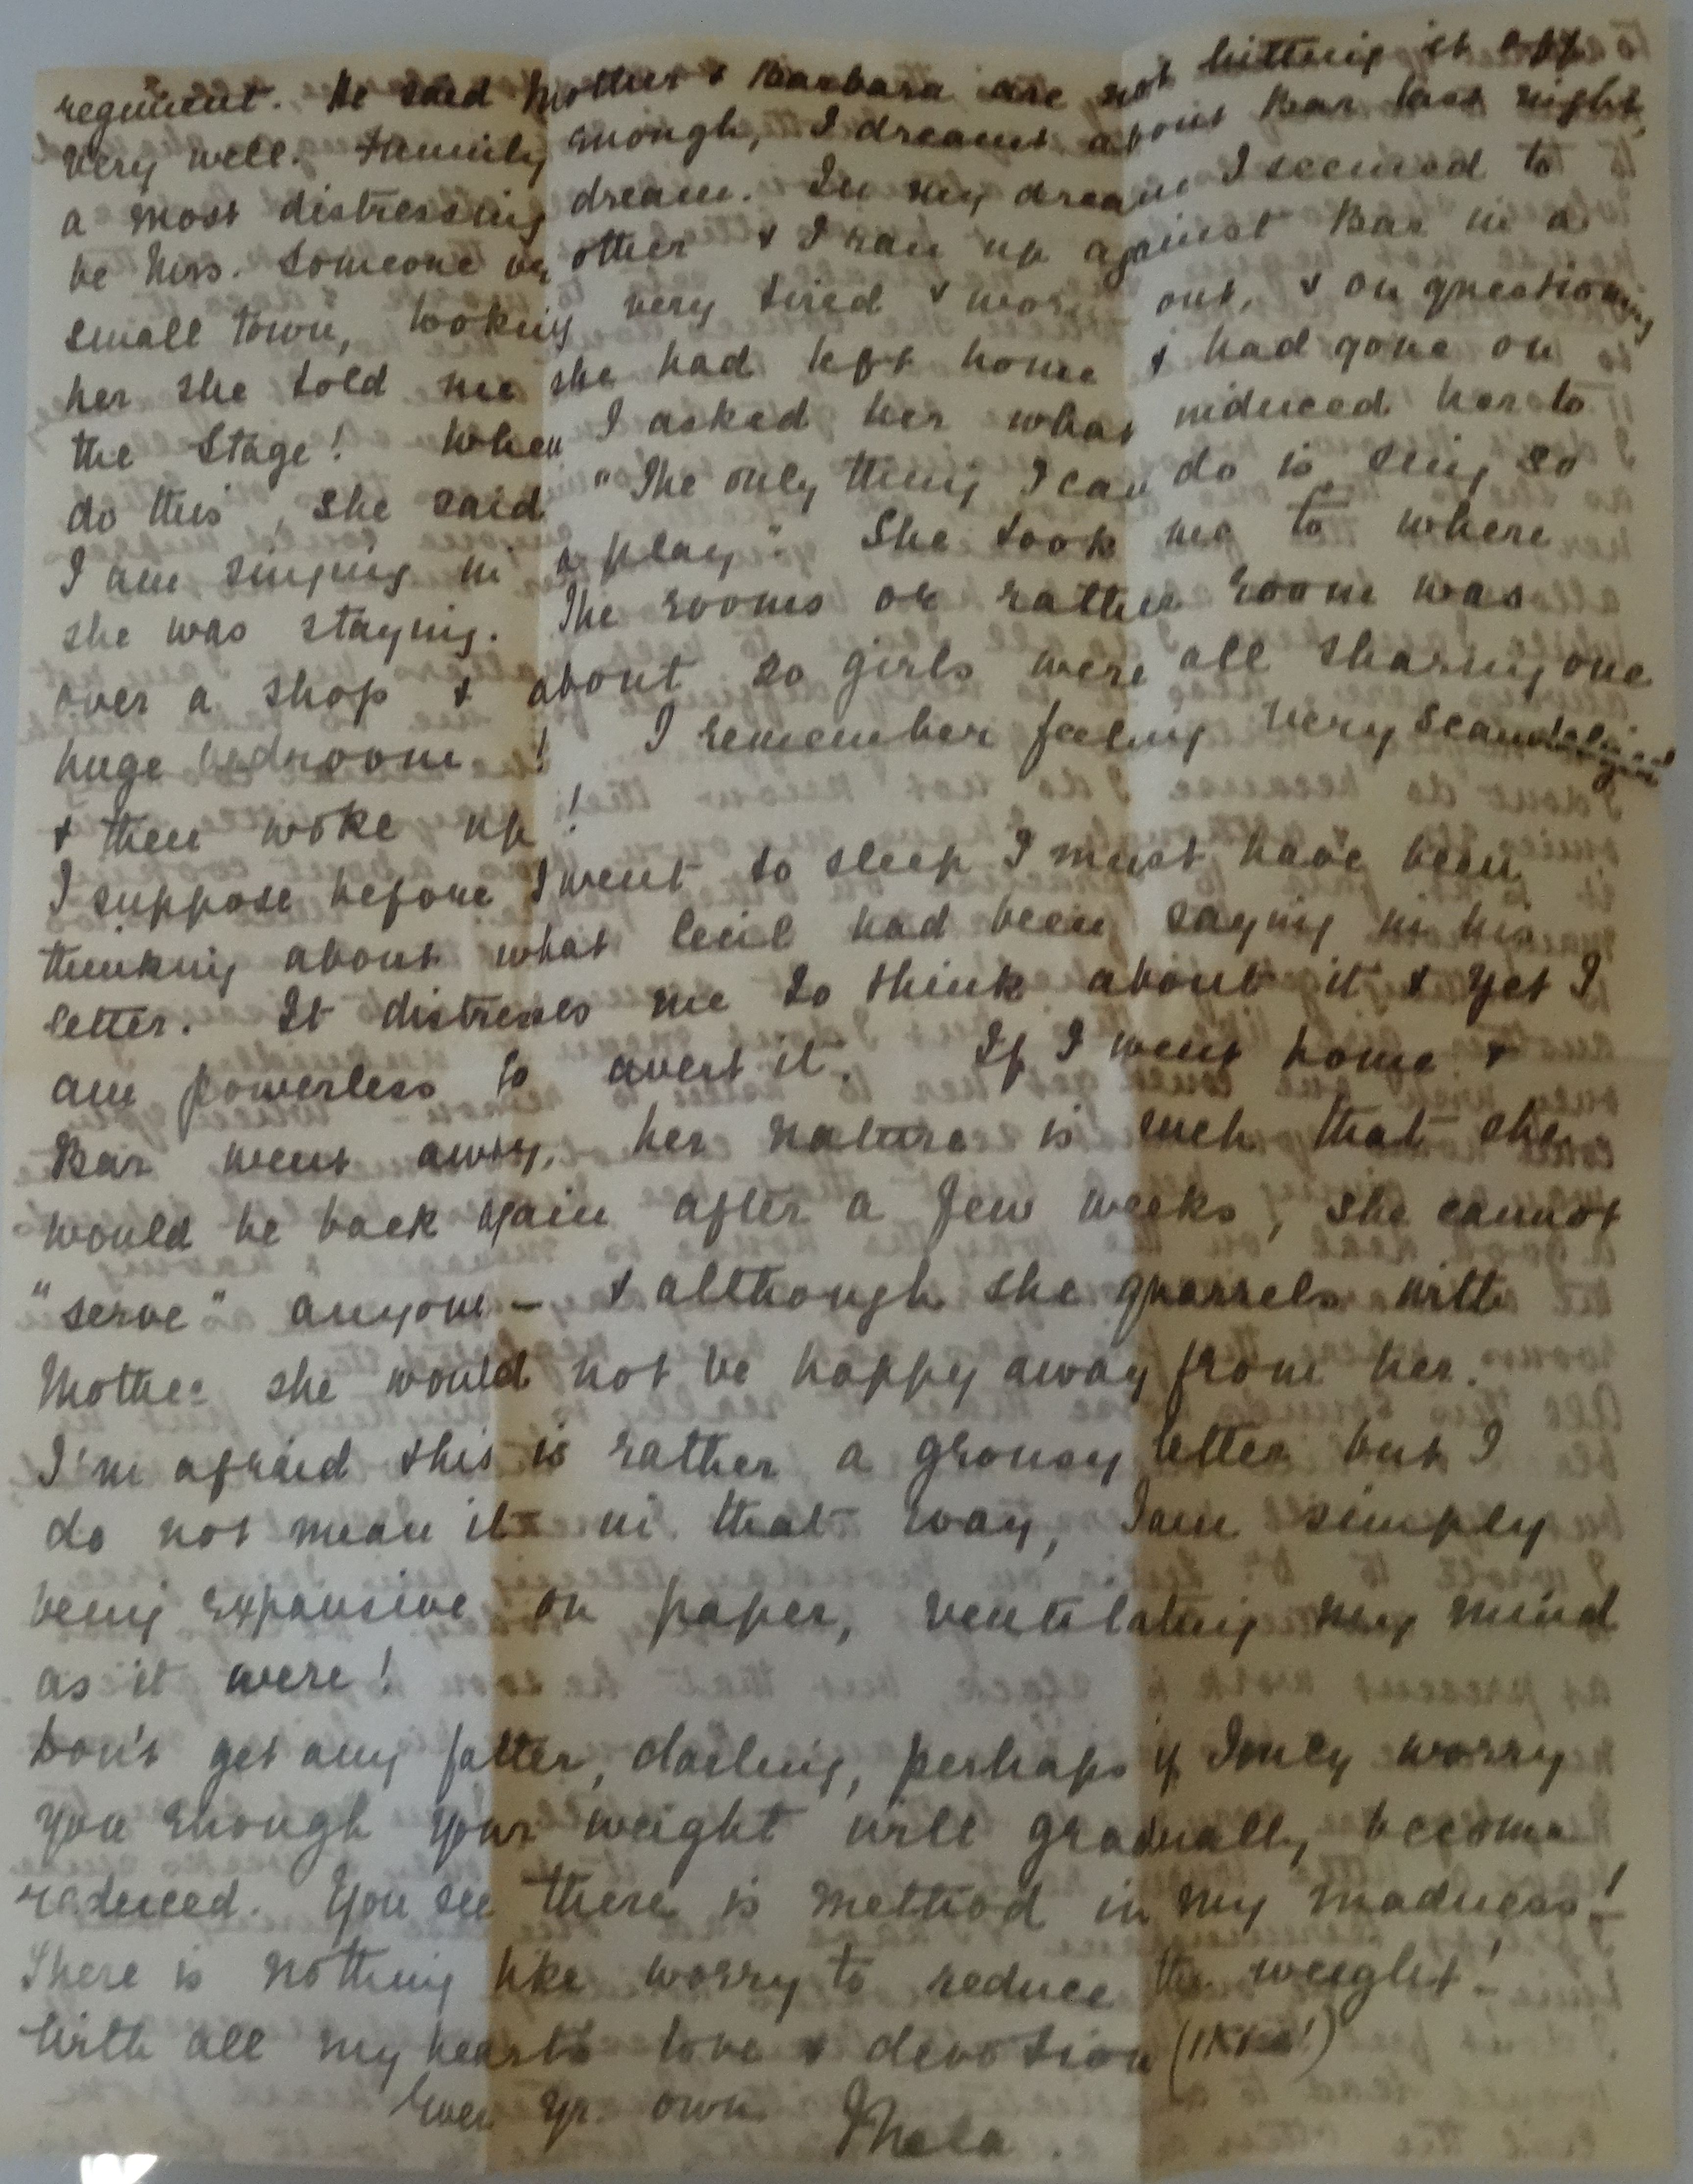 regiment. He said Mother & Barbara are not hitting it off
very well. Funnily enough, I dreamt about Bar last night,
a most distressing dream. In my dream I seemed to
be Mrs. Someone or other & I ran up against Bar in a
small town, looking very tired & worn out, & on questioning
her she told me she had left home & had gone on
the Stage! When I asked her what induced her to
do this, she said "The only thing I can do is sing so
I am singing in a play". She took me to where
she was staying. The rooms or rather room was
over a shop & about 20 girls were all sharing one
huge bedroom! I remember feeling very scandalised
& then woke up!
I suppose before I went to sleep I must have been
thinking about what Cecil had been saying in his
letter. It distresses me to think about it & yet I
am powerless to avert it. If I went home &
Bar went away, her nature is such that she
would be back again after a few weeks, she cannot
"serve" anyone — & although she quarrels with
Mother she would not be happy away from her.
I'm afraid this is rather a grousy letter but I
do not mean it in that way, I am simply
being expansive on paper, ventilating my mind
as it were!
Don't get any fatter, darling, perhaps if I only worry
you enough your weight will gradually become
reduced. You see there is method in my madness!
There is nothing like worry to reduce the weight!
With all my hearts love & devotion
Ever yr. own